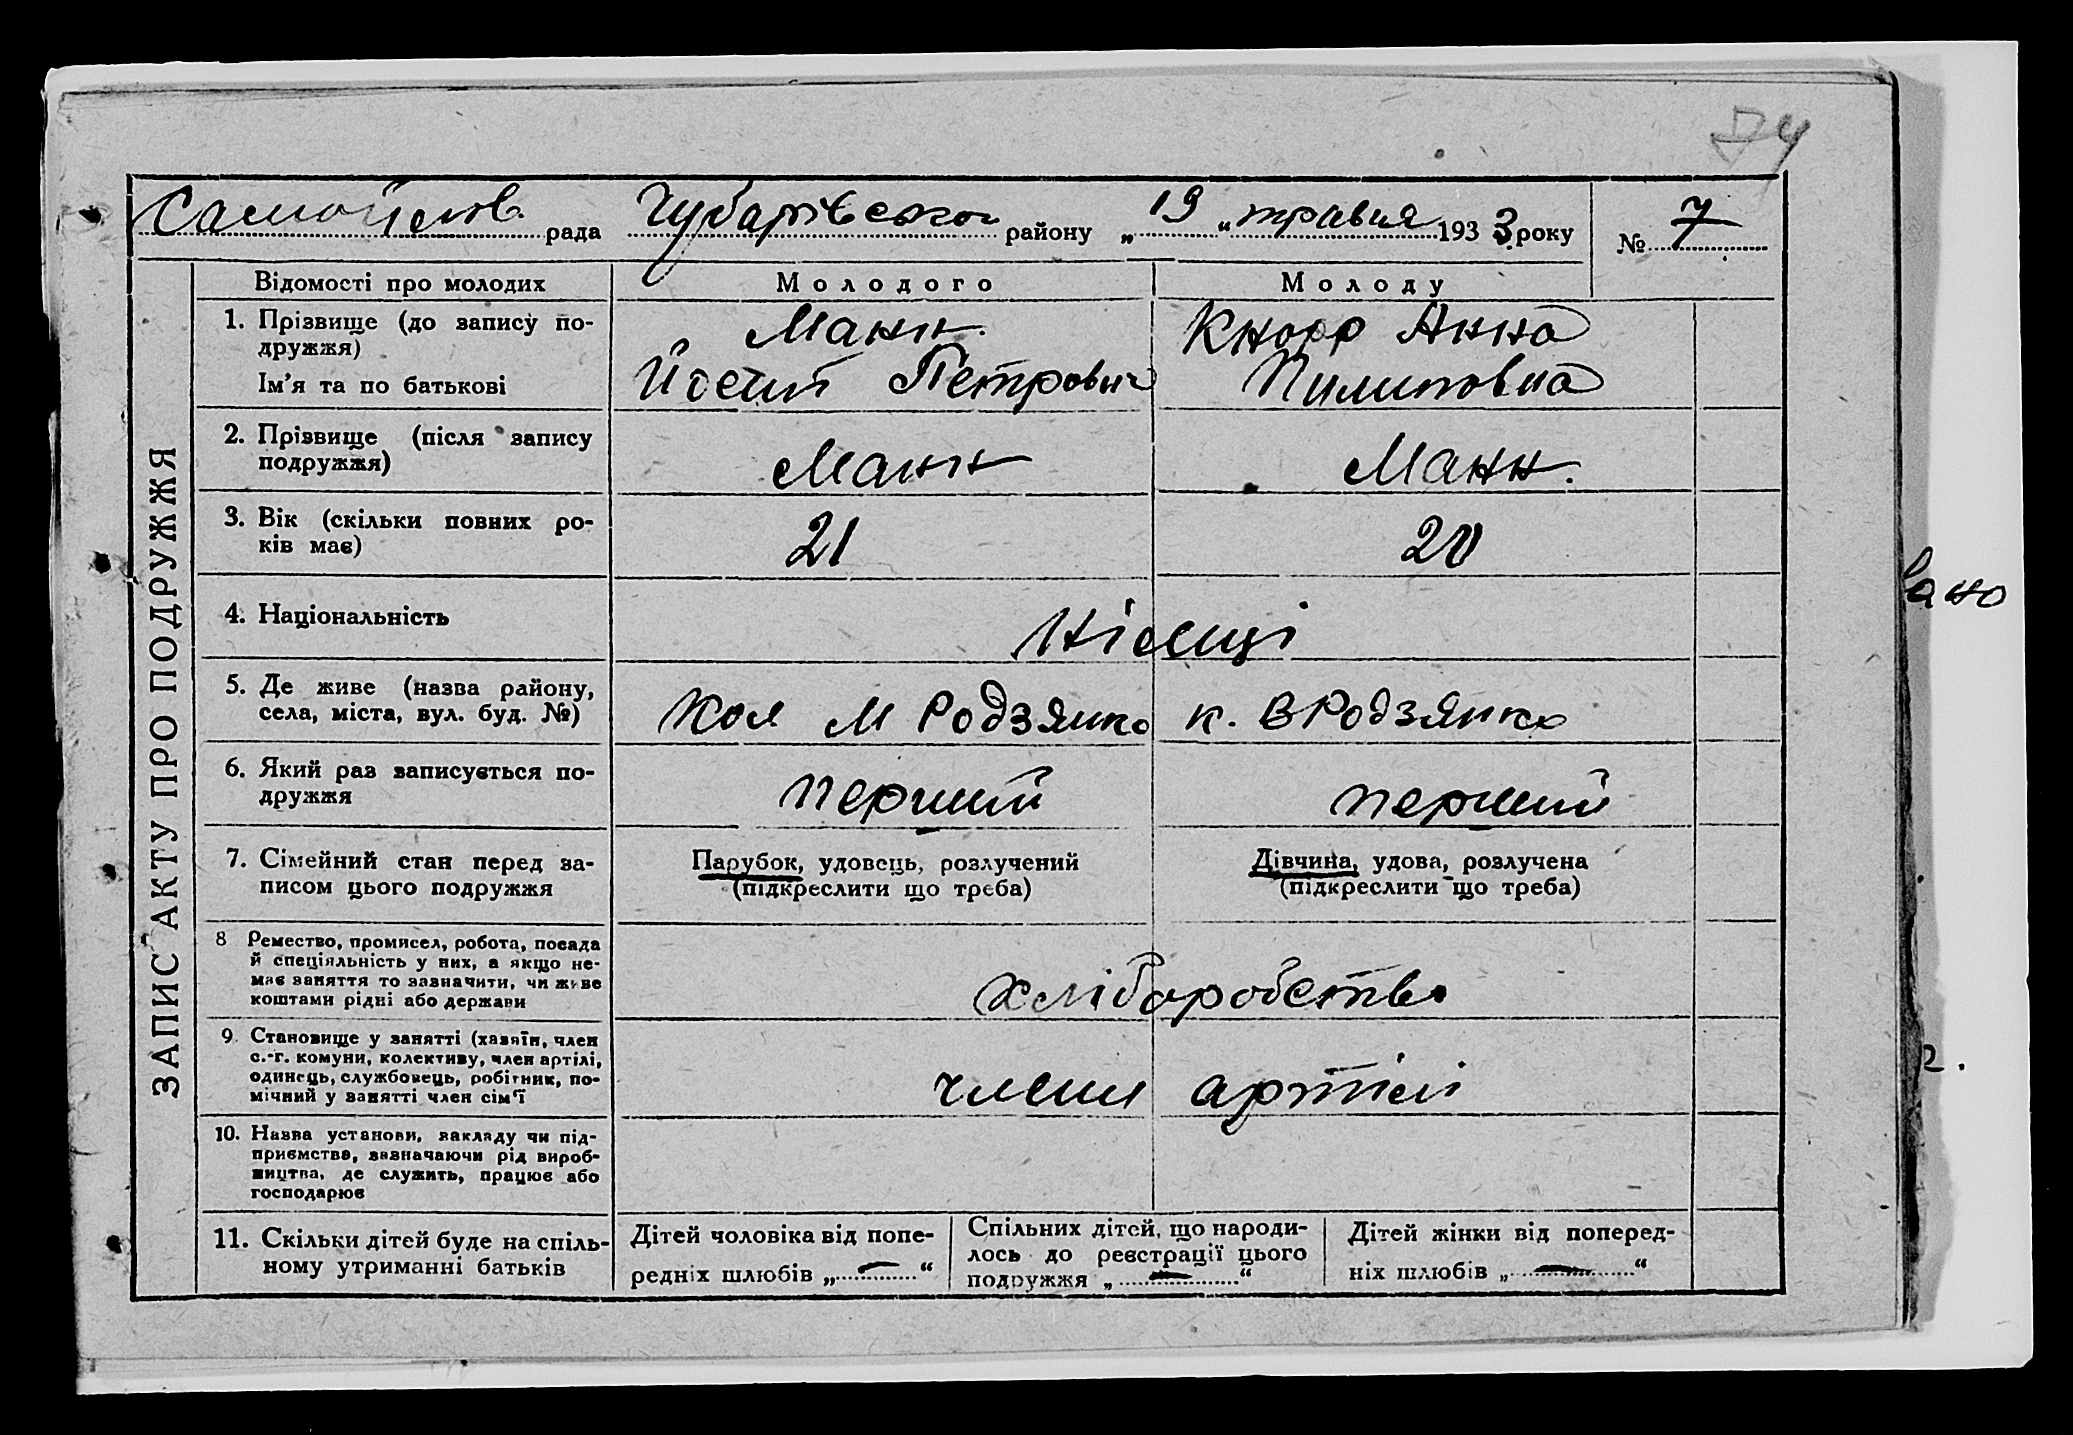 74
Самойлов. рада Чубарівського району „19“ травня 1933 року № 7
ЗАПИС АКТУ ПРО ПОДРУЖЖЯ
Відомості про молодих
Молодого
Молоду
1. Прізвище (до запису по-
дружжя)
Ім'я та по батькові
Манн.
Йосип Петрович
Кнорр Анна
Пилиповна
2. Прізвище (після запису
подружжя)
Манн
Манн.
3. Вік (скільки повних ро-
ків має)
21
20
4. Національність
Німці
5. Де живе (назва району,
села, міста, вул. буд. №)
Кол М Родзянко
к. В Родзянко
6. Який раз записується по-
дружжя
перший
перший
7. Сімейний стан перед за-
писом цього подружжя
Парубок, удовець, розлучений
(підкреслити що треба)
Дівчина, удова, розлучена
(підкреслити що треба)
8 Ремество, промисел, робота, посада
й спеціяльність у них, а якщо не-
має заняття то зазначити, чи живе
коштами рідні або держави
хліборобство
9. Становище у занятті (хазяїн, член
с.-г. комуни, колективу, член артілі,
одинець, службовець, робітник, по-
мічний у занятті член сім'ї
члени артілі
10. Назва установи, закладу чи під-
приємства, зазначаючи рід вироб-
ництва, де служить, працює або
господарює
11. Скільки дітей буде на спіль-
ному утриманні батьків
Дітей чоловіка від попе-
редніх шлюбів „ — “
Спільних дітей, що народи-
лось до реєстрації цього
подружжя „ — “
Дітей жінки від поперед-
ніх шлюбів „ — “